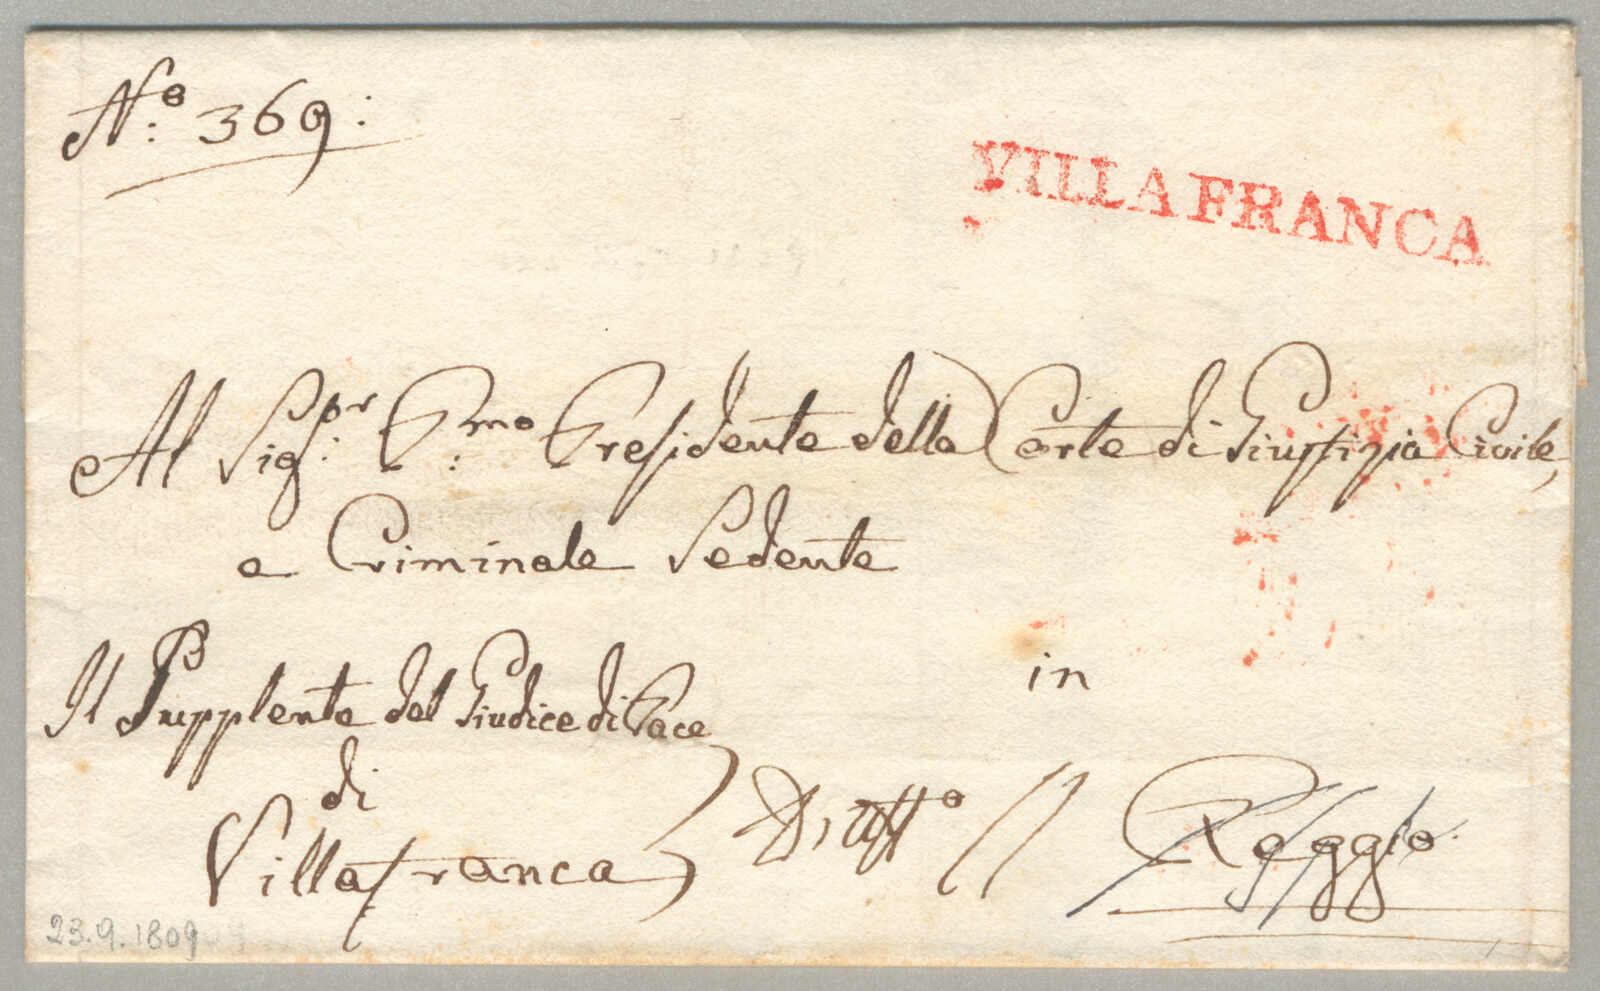 N.o 369:
VILLAFRANCA
Al Sig.or P.mo Presidente della Corte di Giustizia Civile,
e Criminale Sedente
in
Reggio
Il Supplente del Giudice di Pace
di
Villafranca
D'uff.o
23.9.1809